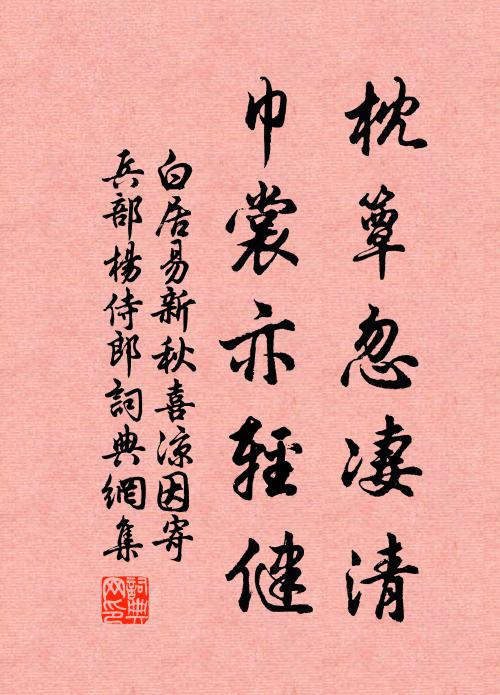 枕簟忽凄清
巾裳亦輕健
白居易新秋喜涼因寄
兵部楊侍郎詞典網集
詞典网印